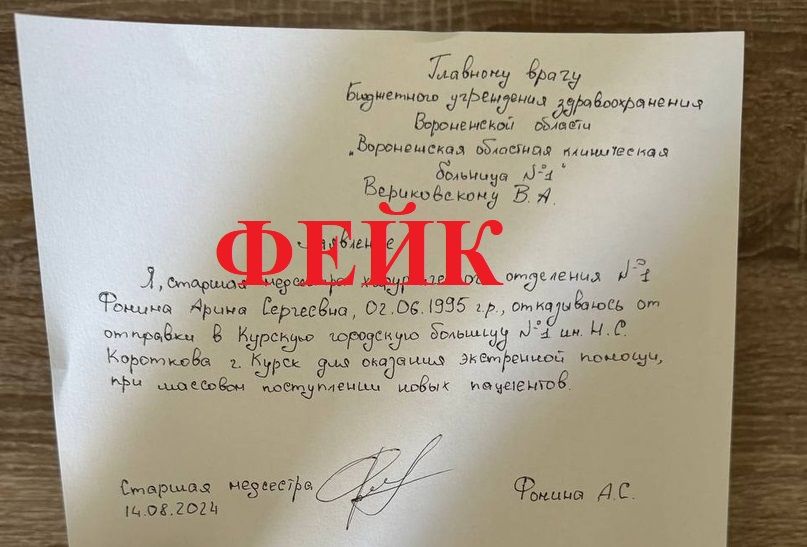 Главному врачу
Бюджетного учреждения здравоохранения
Воронежской области
„Воронежская областная клиническая
больница №1"
Вериковскому В.А.
Заявление
ФЕЙК
Я, старшая медсестра хирургического отделения №1
Фонина Арина Сергеевна, 02.06.1995 г.р., отказываюсь от
отправки в Курскую городскую больницу №1 им. Н.С.
Короткова г. Курск для оказания экстренной помощи,
при массовом поступлении новых пациентов.
Старшая медсестра
Фонина А.С.
14.08.2024